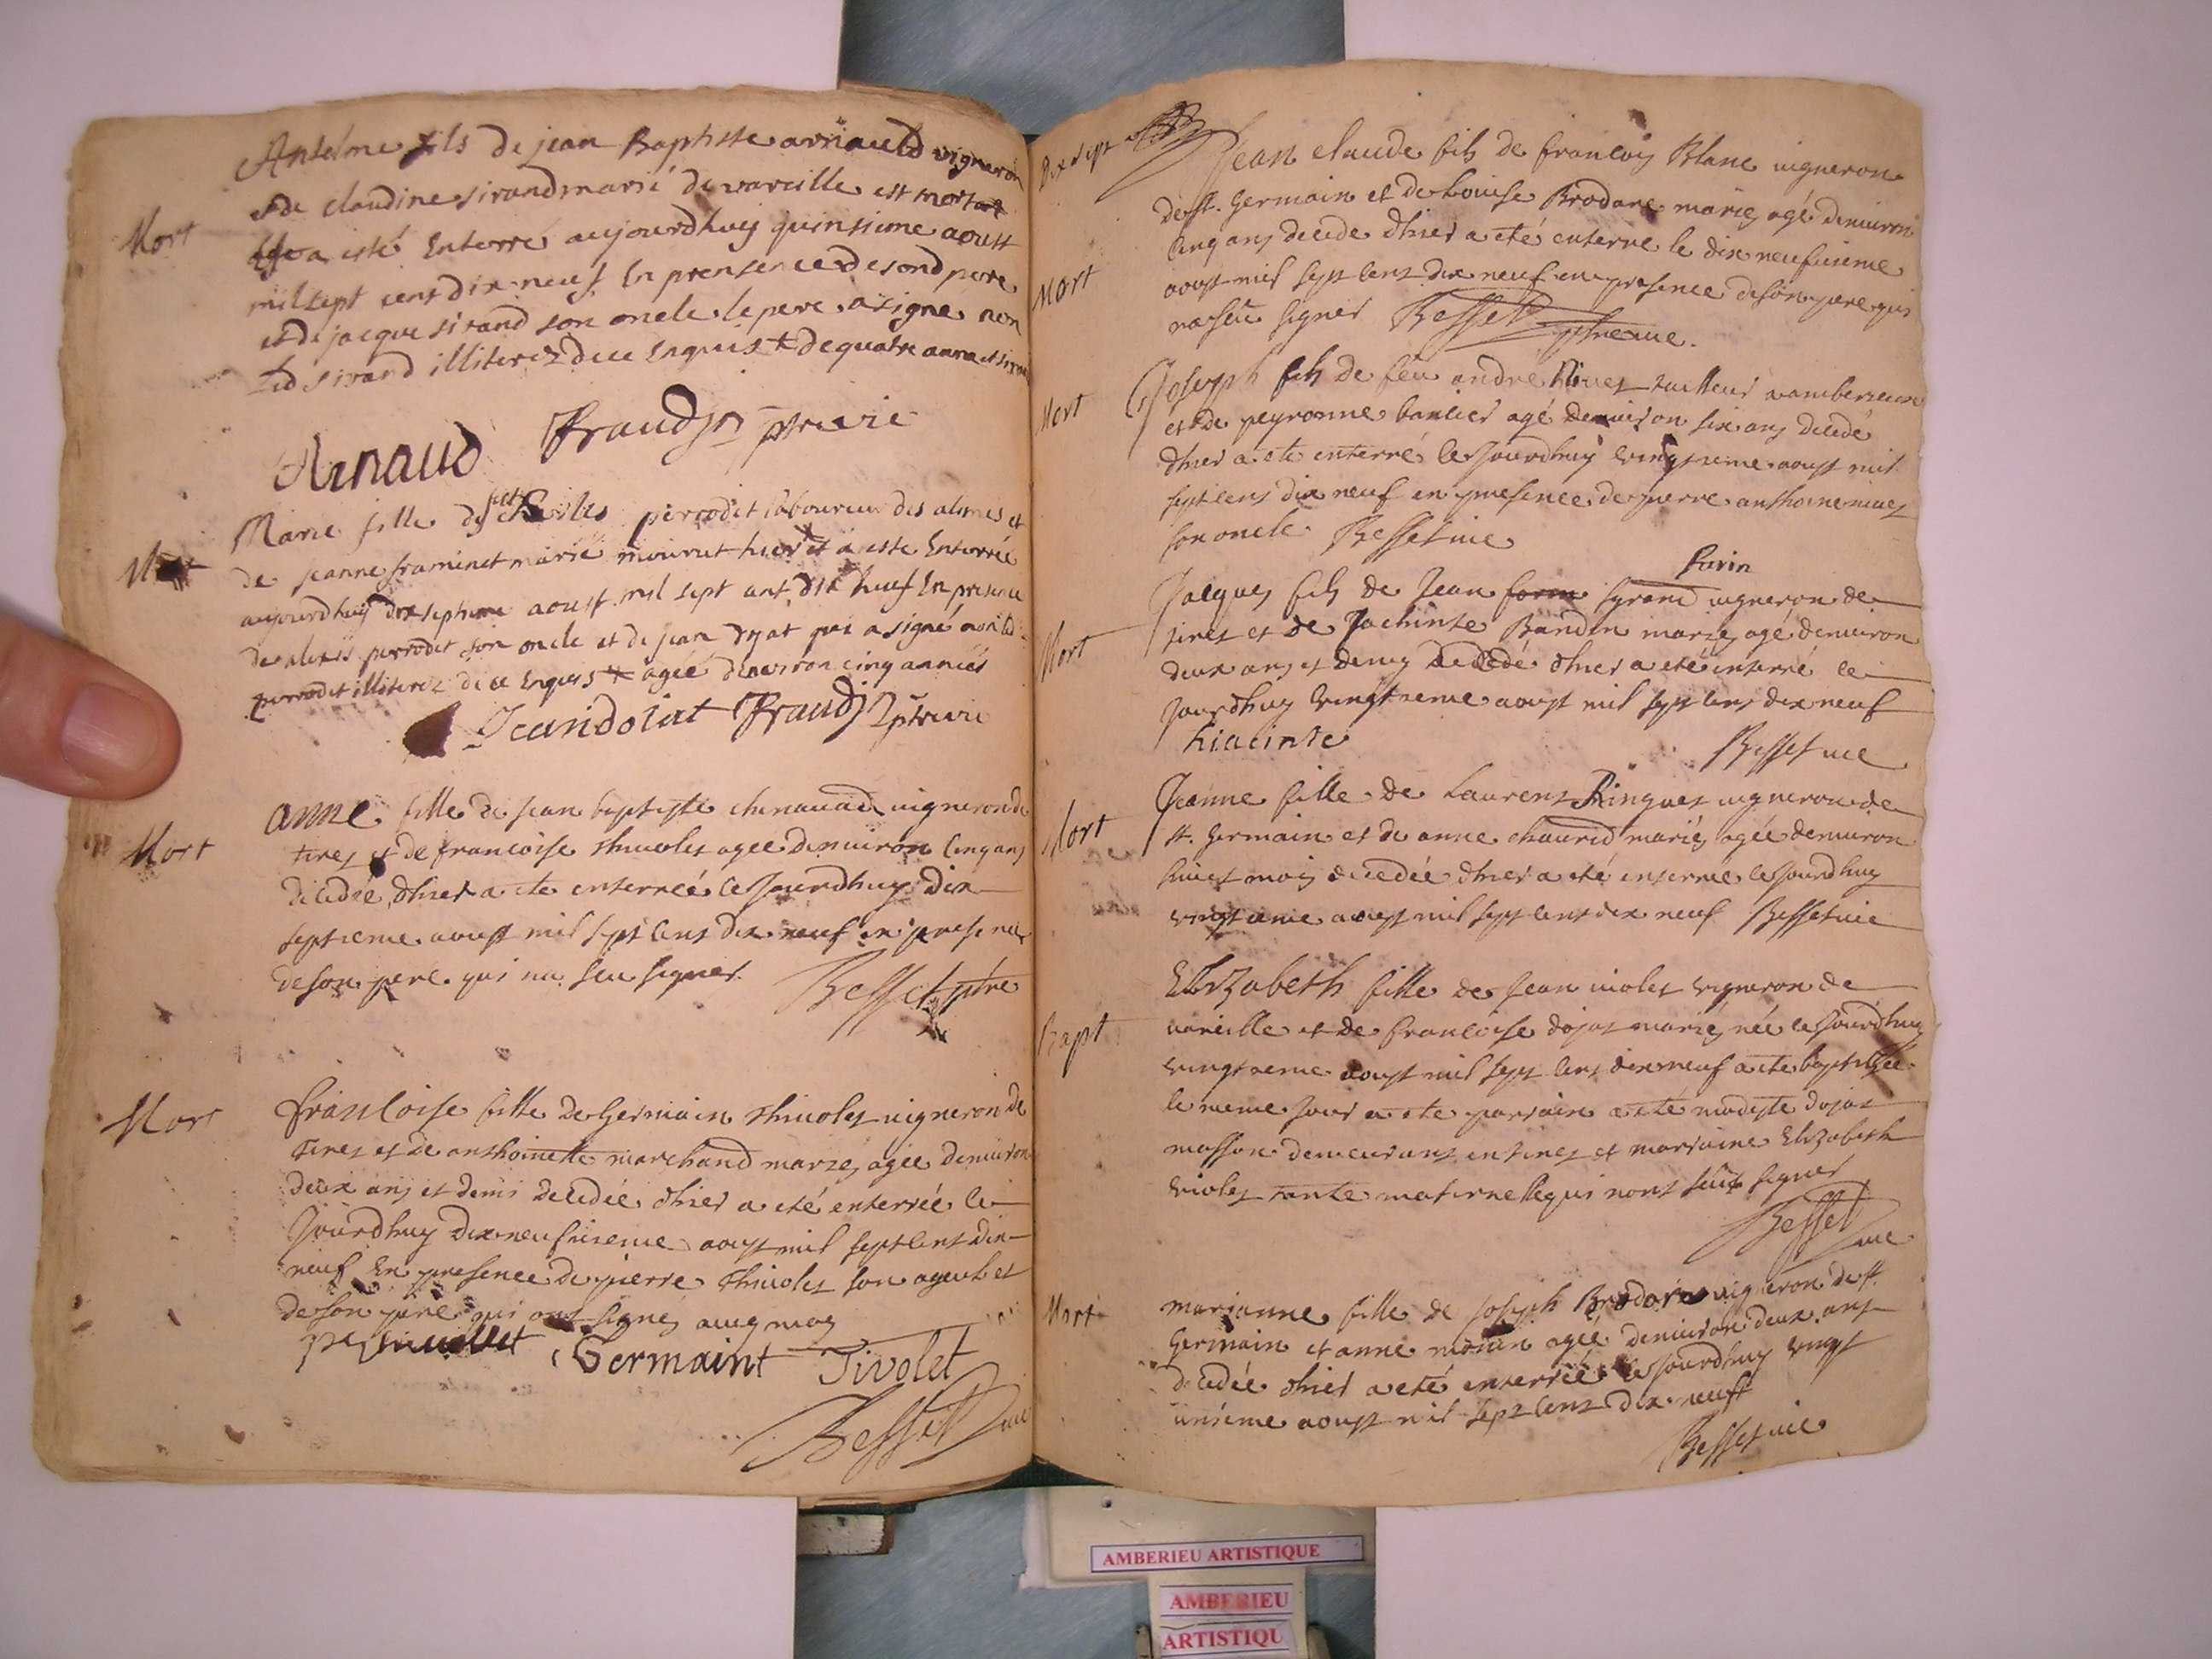 Anselme fils de jean Baptiste arnauld vigneron
et de claudine sirand marié de vareille est mort
et a esté Enterré aujourdhuy quinsieme aoust
mil sept cent dix neuf In prensence de sond pere
et de jacque sirand son oncle le pere a signe non
led sirand illiterez de ce Enquis + de quatre anne et six
Mort
Arnaud Braudjn ptre vic
Marie fille de feut Charles perrodet laboureur des alimes et
de jeanne framinet marié mourut hier et a este Enterrée
aujourdhuy dix septieme aoust mil sept cent dix neuf In presence
de alexis perrodet son oncle et de jean dojat qui a signé non led
perrodet illiterez de ce Enquis + agée denviron cinq années
Mort
Jeandoiat Braudjn ptre vic
anne fille de jean baptiste chenavad vigneron de
tires et de francoise thivolet agee denviron cinq ans
décédée dhier a ete enterreé cejourdhuy dix
septieme aoust mil sept cens dix neuf en presence
de son pere qui na seu signer. Besset ptre
Mort
francoise fille de Germain thivolet vigneron de
tires et de anthoinette marchand mariés agée denviron
deux ans et demi decedée dhier a eté enterrée ce
Jourdhuy dix neufvieme aoust mil sept cens dix
neuf en presence de pierre thivolet son ayeul et
de son père qui ont signés avec moy
Mort
P Thivollet Germaint Tivolet
Besset vic
Dix sept
Jean claude fils de francois Blanc vigneron
de st. Germain et de Louise Brodare mariés agé denviron
cinq ans decede dhier a eté enterré le dix neufvieme
aoust mil sept cens dix neuf en presence de son pere qui
na seu signer Besset ptre vic.
Mort
Joseph fils de feu andré nivet tailleur a amberieux
et de peyronne barlier agé denviron six ans decedé
dhier a ete enterré cejourdhuy vingtieme aoust mil
sept cens dix neuf en presence de pierre anthoine nivet
son oncle Besset vic
Mort
Purin
Jacques fils de Jean syrand vigneron de
tires et de Jachinte Bandin mariés agé denviron
deux ans et demy decedé dhier a eté enterré ce
jourdhuy vingtieme aoust mil sept cens dix neuf
hiacinte Besset vic
Mort
Jeanne fille de Laurent Ringuet vigneron de
st. Germain et de anne chauvid mariés agée denviron
huict mois decedée dhier a eté enterrée cejourdhuy
vingtieme aoust mil sept cens dix neuf Besset vic
Mort
Elizabeth fille de Jean violet vigneron de
vareille et de francoise dojat mariés née cejourdhuy
vingtieme aoust mil sept cens dix neuf a ete baptisée
le meme jour a ete parrain a eté modeste dojat
masson demeurant en tires et marraine Elizabeth
violet tante maternelle qui nont seut signer
Bapt
Besset vic
marianne fille de joseph Brodare vigneron de st.
Germain et anne morin agée denviron deux ans
decedée dhier a eté enterrée cejourdhuy vingt
unieme aoust mil sept cens dix neuf
Mort
Besset vic
AMBERIEU ARTISTIQUE
AMBERIEU
ARTISTIQU